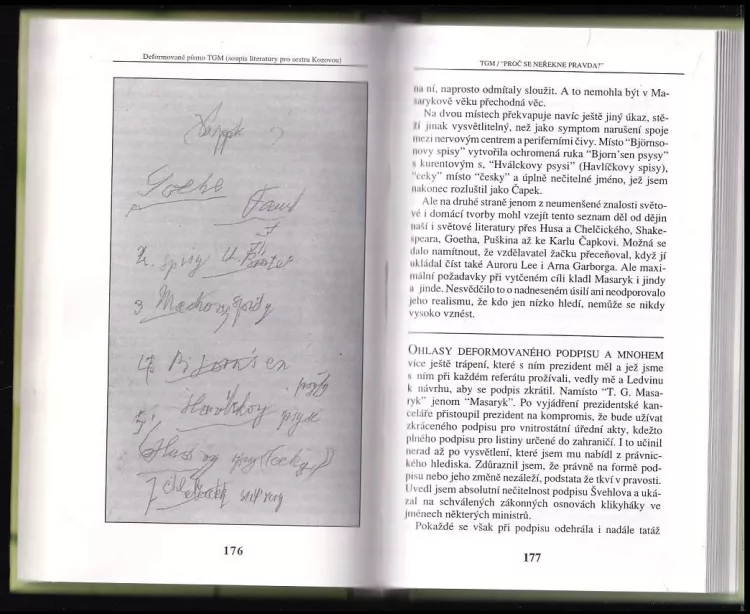 Deformované písmo TGM (soupis literatury pro sestru Kozovou)
Goethe
Faust
2. spisy
3 Machovy spisy
4) Bjorn'sen
5)
psysi
7
176
TGM / "PROČ SE NEŘEKNE PRAVDA?"
na ní, naprosto odmítaly sloužit. A to nemohla být v Ma-
sarykově věku přechodná věc.
Na dvou místech překvapuje navíc ještě jiný úkaz, stě-
ží jinak vysvětlitelný, než jako symptom narušení spoje
mezi nervovým centrem a periferními čivy. Místo "Björnso-
novy spisy" vytvořila ochromená ruka "Bjorn'sen psysy"
s kurentovým s, "Hválckovy psysi" (Havlíčkovy spisy),
"ceky" místo "česky" a úplně nečitelné jméno, jež jsem
nakonec rozluštil jako Čapek.
Ale na druhé straně jenom z neumenšené znalosti světo-
vé i domácí tvorby mohl vzejít tento seznam děl od dějin
naší i světové literatury přes Husa a Chelčického, Shake-
speara, Goetha, Puškina až ke Karlu Čapkovi. Možná se
dalo namítnout, že vzdělavatel žačku přeceňoval, když jí
ukládal číst také Auroru Lee i Arna Garborga. Ale maxi-
mální požadavky při vytčeném cíli kladl Masaryk i jindy
a jinde. Nesvědčilo to o nadneseném úsilí ani neodporovalo
jeho realismu, že kdo jen nízko hledí, nemůže se nikdy
vysoko vznést.
OHLASY DEFORMOVANÉHO PODPISU A MNOHEM
více ještě trápení, které s ním prezident měl a jež jsme
s ním při každém referátu prožívali, vedly mě a Ledvinu
k návrhu, aby se podpis zkrátil. Namísto "T. G. Masa-
ryk" jenom "Masaryk". Po vyjádření prezidentské kan-
celáře přistoupil prezident na kompromis, že bude užívat
zkráceného podpisu pro vnitrostátní úřední akty, kdežto
plného podpisu pro listiny určené do zahraničí. I to učinil
nerad až po vysvětlení, které jsem mu nabídl z právnic-
kého hlediska. Zdůraznil jsem, že právně na formě pod-
pisu nebo jeho změně nezáleží, podstata že tkví v pravosti.
Uvedl jsem absolutní nečitelnost podpisu Švehlova a uká-
zal na schválených zákonných osnovách klikyháky ve
jménech některých ministrů.
Pokaždé se však při podpisu odehrála i nadále tatáž
177